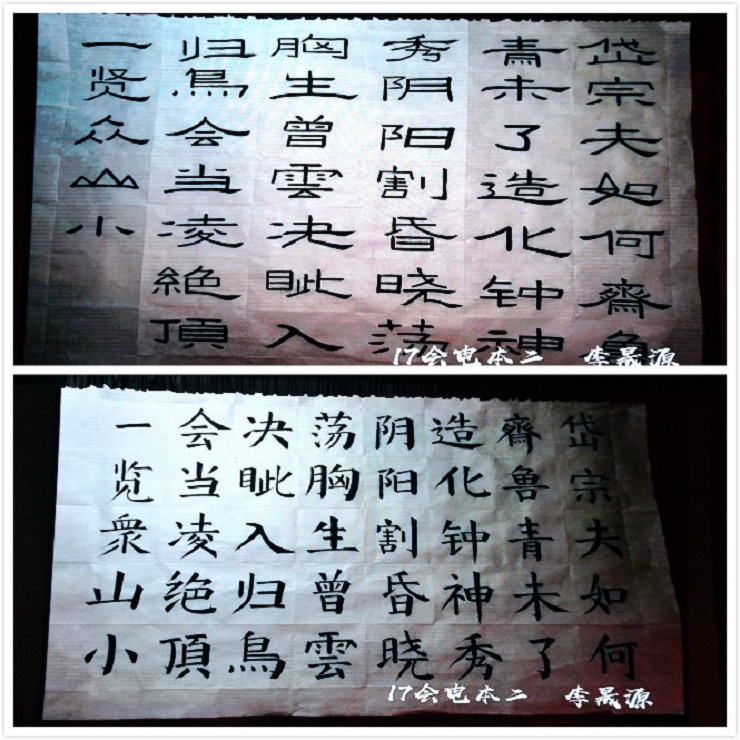 岱宗夫如何齋鲁
青未了造化钟神
秀阴阳割昏晓荡
胸生曾雲决眦入
归鳥会当凌絶頂
一贤众山小
17会电本二 李晟源
岱宗夫如何
齊鲁青未了
造化钟神秀
阴阳割昏晓
荡胸生曾雲
决眦入归鳥
会当凌绝頂
一览衆山小
17会电本二 李晟源